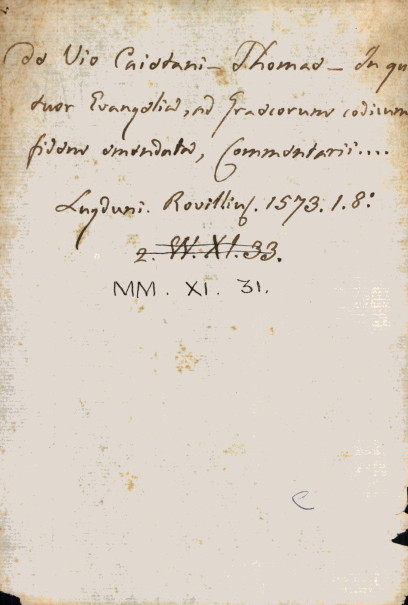 de Vio Caietani - Thomae - In qu
tuor Evangelia, ad Graecorum codicum
fidem emendata, Commentarii...
Lugduni. Rovillius. 1573. 1. 8:
2. W. XI. 33.
MM. XI. 31.
C